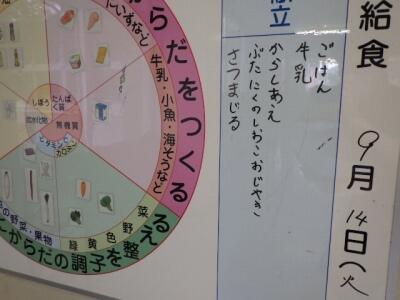 給食 9月14日(火
献立
ごはん
牛乳
からしあえ
ぶたにくのしおこおじやき
さつまじる
からだをつくる
だいずなど
牛乳・小魚・海そうなど
しぼう
たんぱく質
炭水化物
無機質
ビタミン
カロチン
の野菜・果物
緑黄色野菜
からだの調子を整える